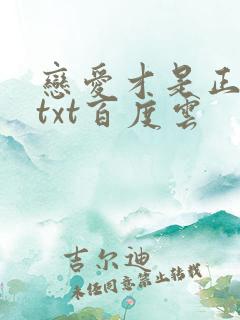 戀愛才是正
txt百度雲
吉尔迪
未经同意禁止转载